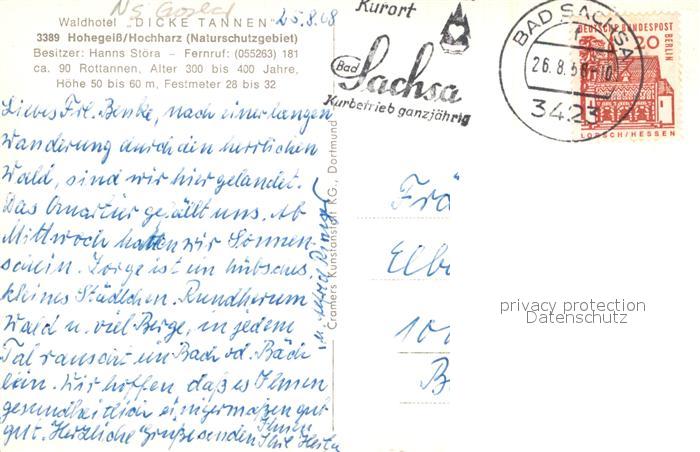 25.8.68
Waldhotel "DICKE TANNEN"
3389 Hohegeiß/Hochharz (Naturschutzgebiet)
Besitzer: Hanns Störa - Fernruf: (055263) 181
ca. 90 Rottannen, Alter 300 bis 400 Jahre,
Höhe 50 bis 60 m, Festmeter 28 bis 32
Liebes Frl. Benke, nach einer langen
Wanderung durch den herrlichen
Wald, sind wir hier gelandet.
Das Quartier gefällt uns. Ab
Mittwoch hatten wir Sonnen-
schein. Zorge ist ein hübsches
kleines Städtchen. Rundherum
Wald u. viel Berge, in jedem
Tal rauscht ein Bach od. Bäch-
lein. Wir hoffen daß es Ihnen
gesundheitlich einigermaßen gut
gut. Herzliche Grüße senden Ihnen
Ihre Herta
u. Alfred
Cramers Kunstanstalt KG., Dortmund
Kurort
Bad Sachsa
Kurbetrieb ganzjährig
BAD SACHSA
1
26.8.68-10
3423
DEUTSCHE BUNDESPOST
BERLIN
20
LORSCH/HESSEN
Frä
Elb
10
B
privacy protection
Datenschutz